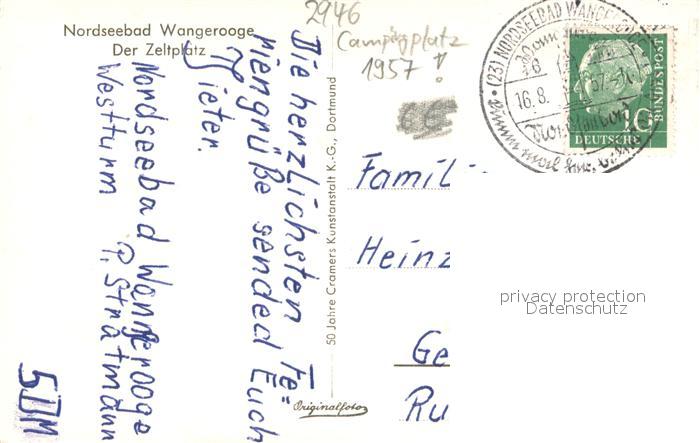 Nordseebad Wangerooge
Der Zeltplatz
2946
Campingplatz
1957!
Die herzlichsten Fe=
riengrüße sended Euch
Dieter.
Nordseebad Wangerooge
Westturm P. Stratmann
5DM
50 Jahre Cramers Kunstanstalt K.-G., Dortmund
Originalfoto
(23) NORDSEEBAD WANGEROOGE
16.8.
57.
DEUTSCHE
BUNDESPOST
Famil
Heinz
Ge
Ru
privacy protection
Datenschutz